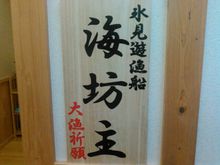 氷見遊漁船
海坊主
大漁祈願